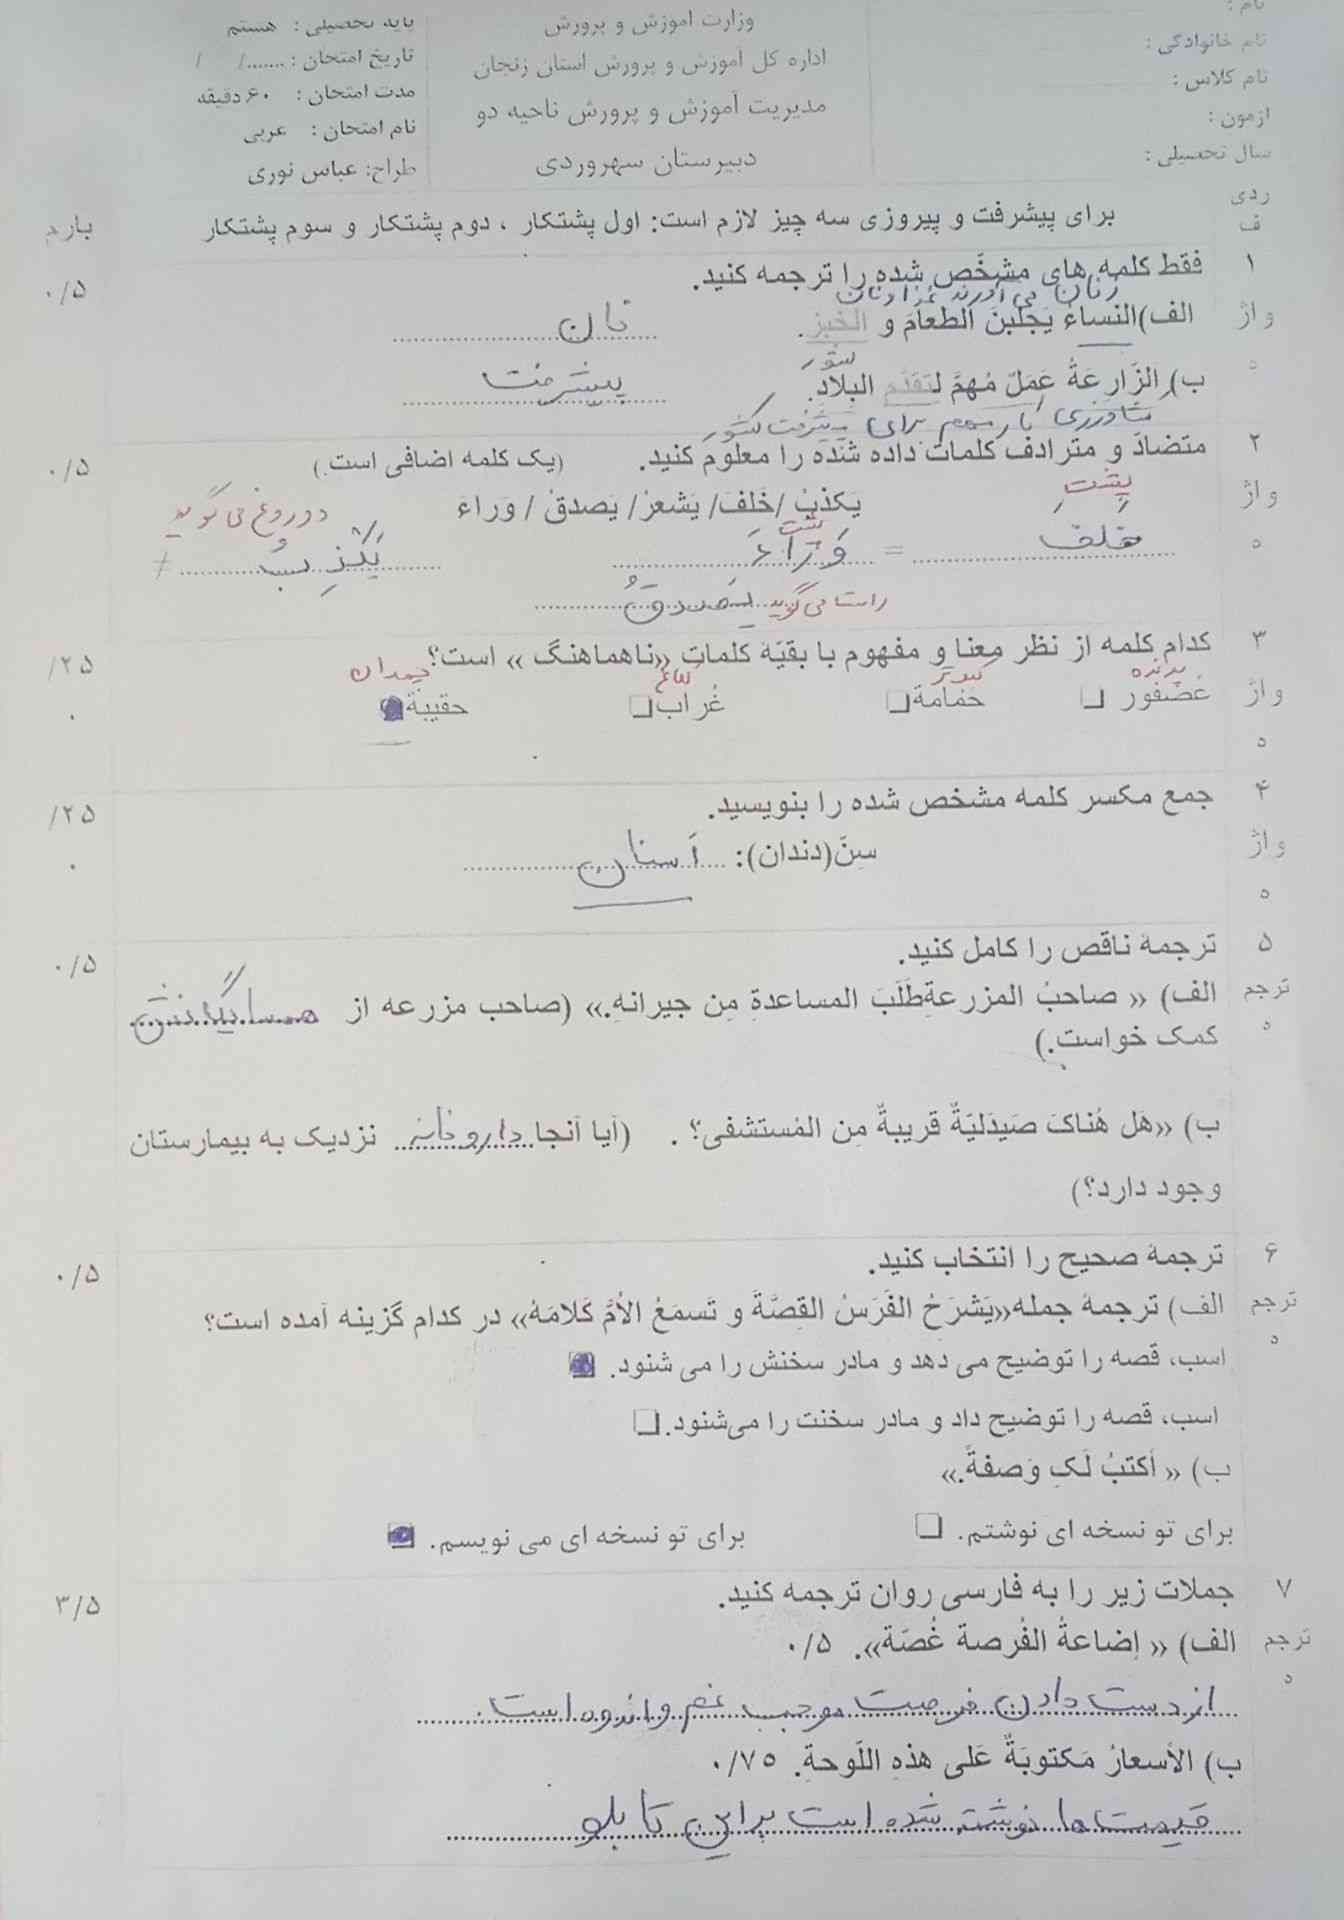 نام :
نام خانوادگی :
نام کلاس :
ازمون :
سال تحصیلی :
وزارت اموزش و پرورش
اداره کل اموزش و پرورش استان زنجان
مدیریت آموزش و پرورش ناحیه دو
دبیرستان سهروردی
پایه تحصیلی : هستم
تاریخ امتحان : ......./ /
مدت امتحان : ۶۰ دقیقه
نام امتحان : عربی
طراح: عباس نوری
ردی
ف
برای پیشرفت و پیروزی سه چیز لازم است: اول پشتکار ، دوم پشتکار و سوم پشتکار
بارم
۱ فقط کلمه های مشخّص شده را ترجمه کنید. ۰/۵
زنان می آورند غذا و نان
واژ
ه
الف)النساءُ یَجلبنَ الطعامَ و الخبز. نان
کشور
ب) الزّارِعَةُ عَمَلٌ مُهمٌ لتقدّم البلادِ. پیشرفت
کشاورزی کار مهم برای پیشرفت کشور
۲ متضادّ و مترادف کلمات داده شده را معلوم کنید. (یک کلمه اضافی است.) ۰/۵
واژ
ه
پشتِ
یَکذبُ /خَلفَ/ یَشعرُ/ یَصدقُ / وَراءَ
دوروغ می گوید
پشت
خلفَ = وَراءَ یَکْذِبُ ≠
راست می گوید یَصدقُ
۳ کدام کلمه از نظر معنا و مفهوم با بقیّه کلماتِ «ناهماهنگ » است؟ ۰/۲۵
واژ
ه
پرنده کبوتر کلاغ چمدان
عُصفور حَمامَة غُراب حقیبَة
۴ جمع مکسر کلمه مشخص شده را بنویسید. ۰/۲۵
واژ
ه
سِنّ(دندان): أسنان
۵ ترجمۀ ناقص را کامل کنید. ۰/۵
ترجم
ه
الف) « صاحبُ المزرعةِطَلَبَ المساعدةِ مِن جیرانهِ.» (صاحب مزرعه از همسایگانش
کمک خواست.)
ب) «هَل هُناکَ صَیدَلیَةٌ قریبةٌ مِن المُستشفی؟ . (آیا آنجا داروخانه نزدیک به بیمارستان
وجود دارد؟)
۶ ترجمۀ صحیح را انتخاب کنید. ۰/۵
ترجم
ه
الف) ترجمۀ جمله«یَشرَحُ الفَرَسُ القِصَّةَ و تَسمَعُ الأمُّ کَلامَهُ» در کدام گزینه آمده است؟
اسب، قصه را توضیح می دهد و مادر سخنش را می شنود.
اسب، قصه را توضیح داد و مادر سخنت را می‌شنود.
ب) « أکتبُ لَکِ وَصفةً.»
برای تو نسخه ای نوشتم. برای تو نسخه ای می نویسم.
۷ جملات زیر را به فارسی روان ترجمه کنید. ۳/۵
ترجم
ه
الف) « إضاعةُ الفُرصة غُصّة». ۰/۵
از دست دادن فرصت موجب غم و اندوه است.
ب) الأسعارُ مَکتوبَةٌ عَلی هذهِ اللَوحةِ. ۰/۷۵
قیمت ها نوشته شده است بر این تابلو